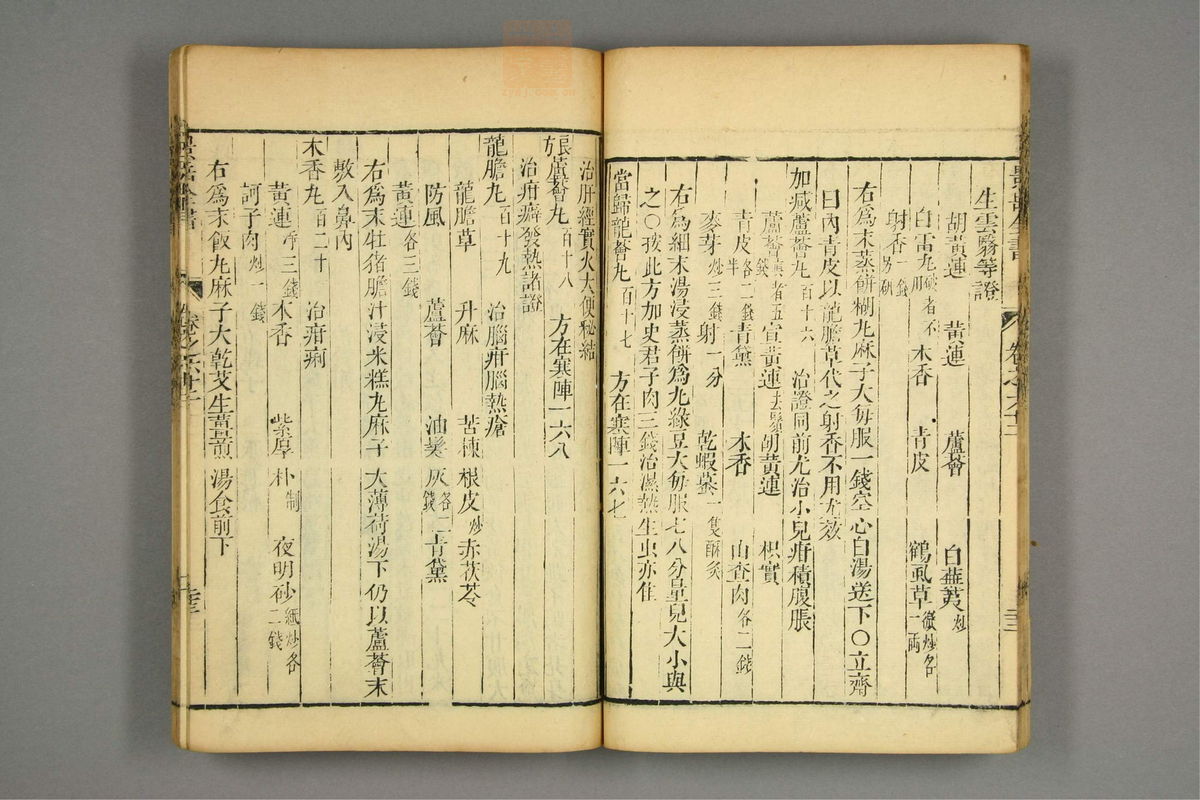 生雲翳等證
胡黃連 黃連 蘆薈 白蕪荑炒
白雷丸破者不用 木香 青皮 鶴虱草微炒各一兩
射香一錢另研
右為末蒸餅糊丸麻子大每服一錢空心白湯送下〇立齋
曰內青皮以龍膽草代之射香不用尤效
加減蘆薈丸百十六 治證同前尤治小兒疳積腹脹
蘆薈真者五錢 宣黃連去鬚 胡黃連 枳實
青皮各二錢半 青黛 木香 山查肉各二錢
麥芽炒三錢 射一分 乾蝦蟇一隻酥炙
右為細末湯浸蒸餅為丸綠豆大每服七八分量兒大小與
之〇孩此方加史君子肉三錢治濕熱生虫亦佳
當歸龍薈丸百十七 方在寒陣一六七
治肝經實火大便秘結
蘆薈丸百十八 方在寒陣一六八
治疳癖發熱諸證
龍膽丸百十九 治腦疳腦熱瘡
龍膽草 升麻 苦楝根皮炒 赤茯苓
防風 蘆薈 油髮灰各二錢 青黛
黃連各三錢
右為末牡猪膽汁浸米糕丸麻子大薄荷湯下仍以蘆薈末
敷入鼻內
木香丸百二十 治疳痢
黃連淨三錢 木香 紫厚朴制 夜明砂紙炒各二錢
訶子肉炒一錢
右為末飯丸麻子大乾艾生薑煎湯食前下